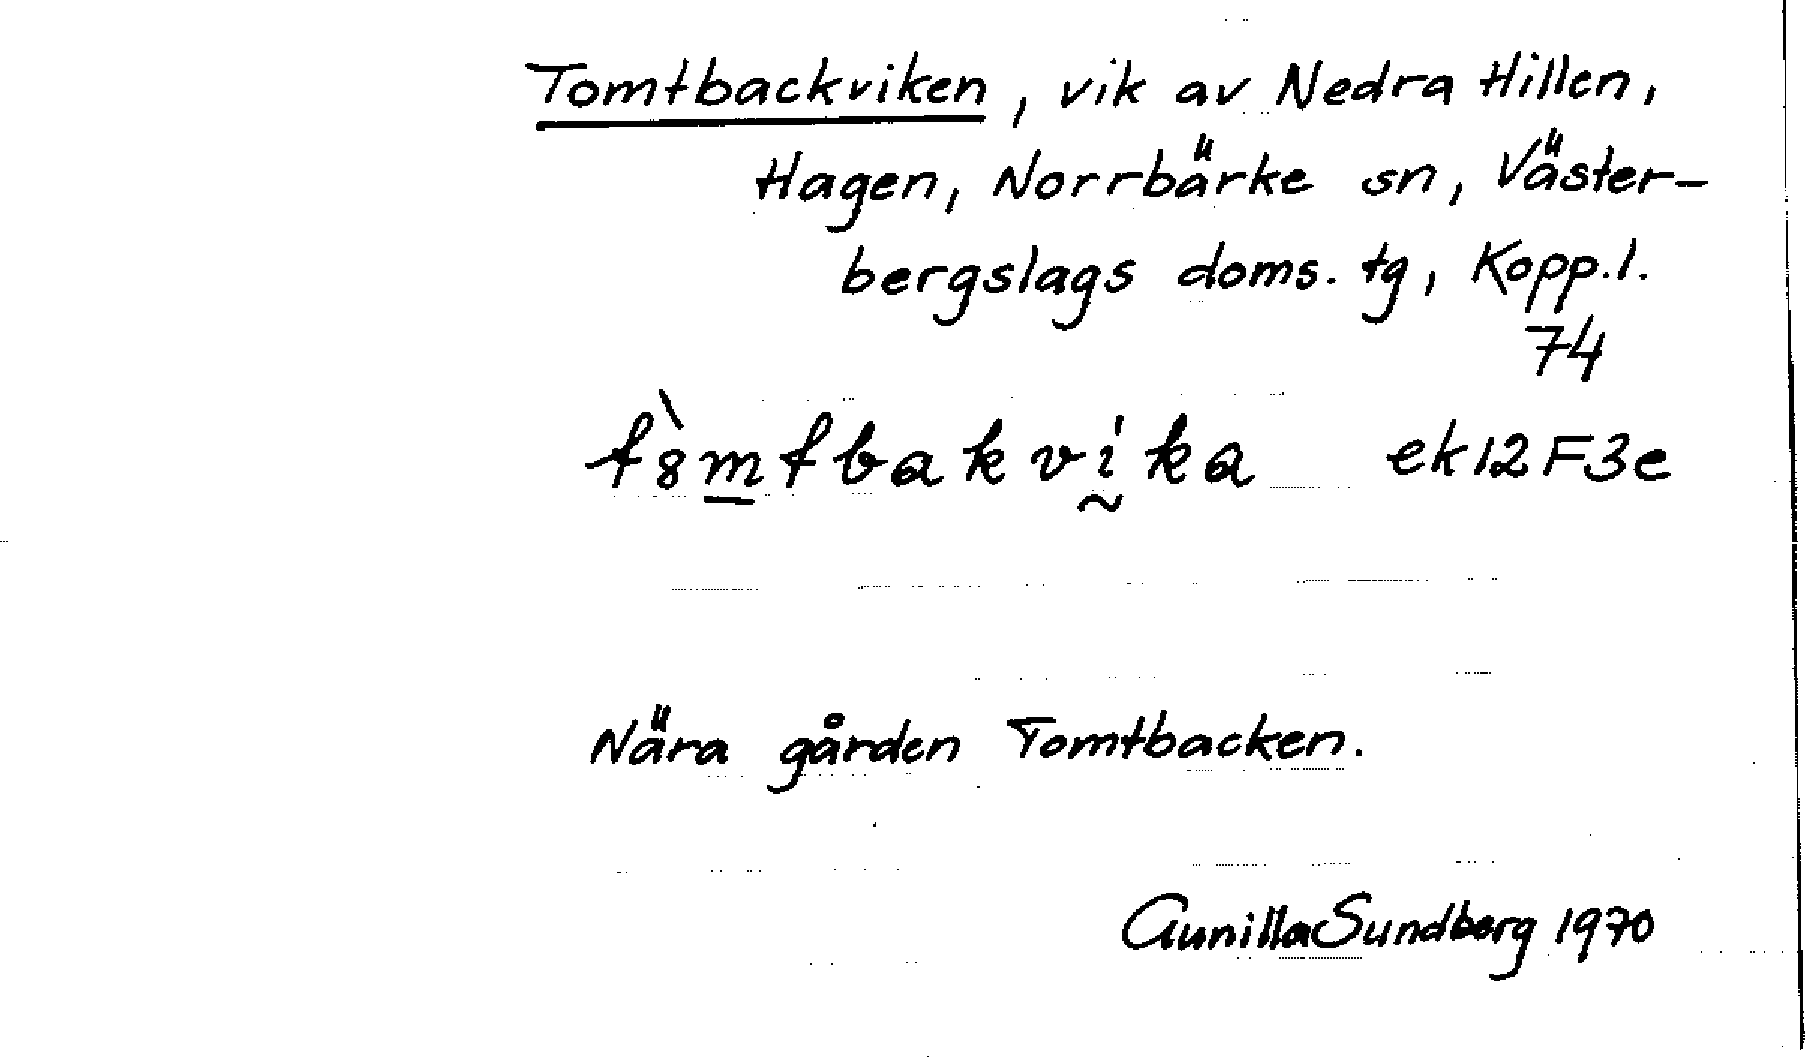 Tomtbackviken, vik av Nedra Hillen,
Hagen, Norrbärke sn, Väster-
bergslags doms. tg, Kopp.l.
74
tò̀8m̲tbakvḭka ek12F3e
Nära gården Tomtbacken.
Gunilla Sundberg 1970